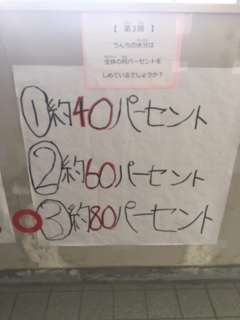 【 第2問 】
うんちの水分は
全体の何パーセントを
しめているでしょうか?
①約40パーセント
②約60パーセント
③約80パーセント